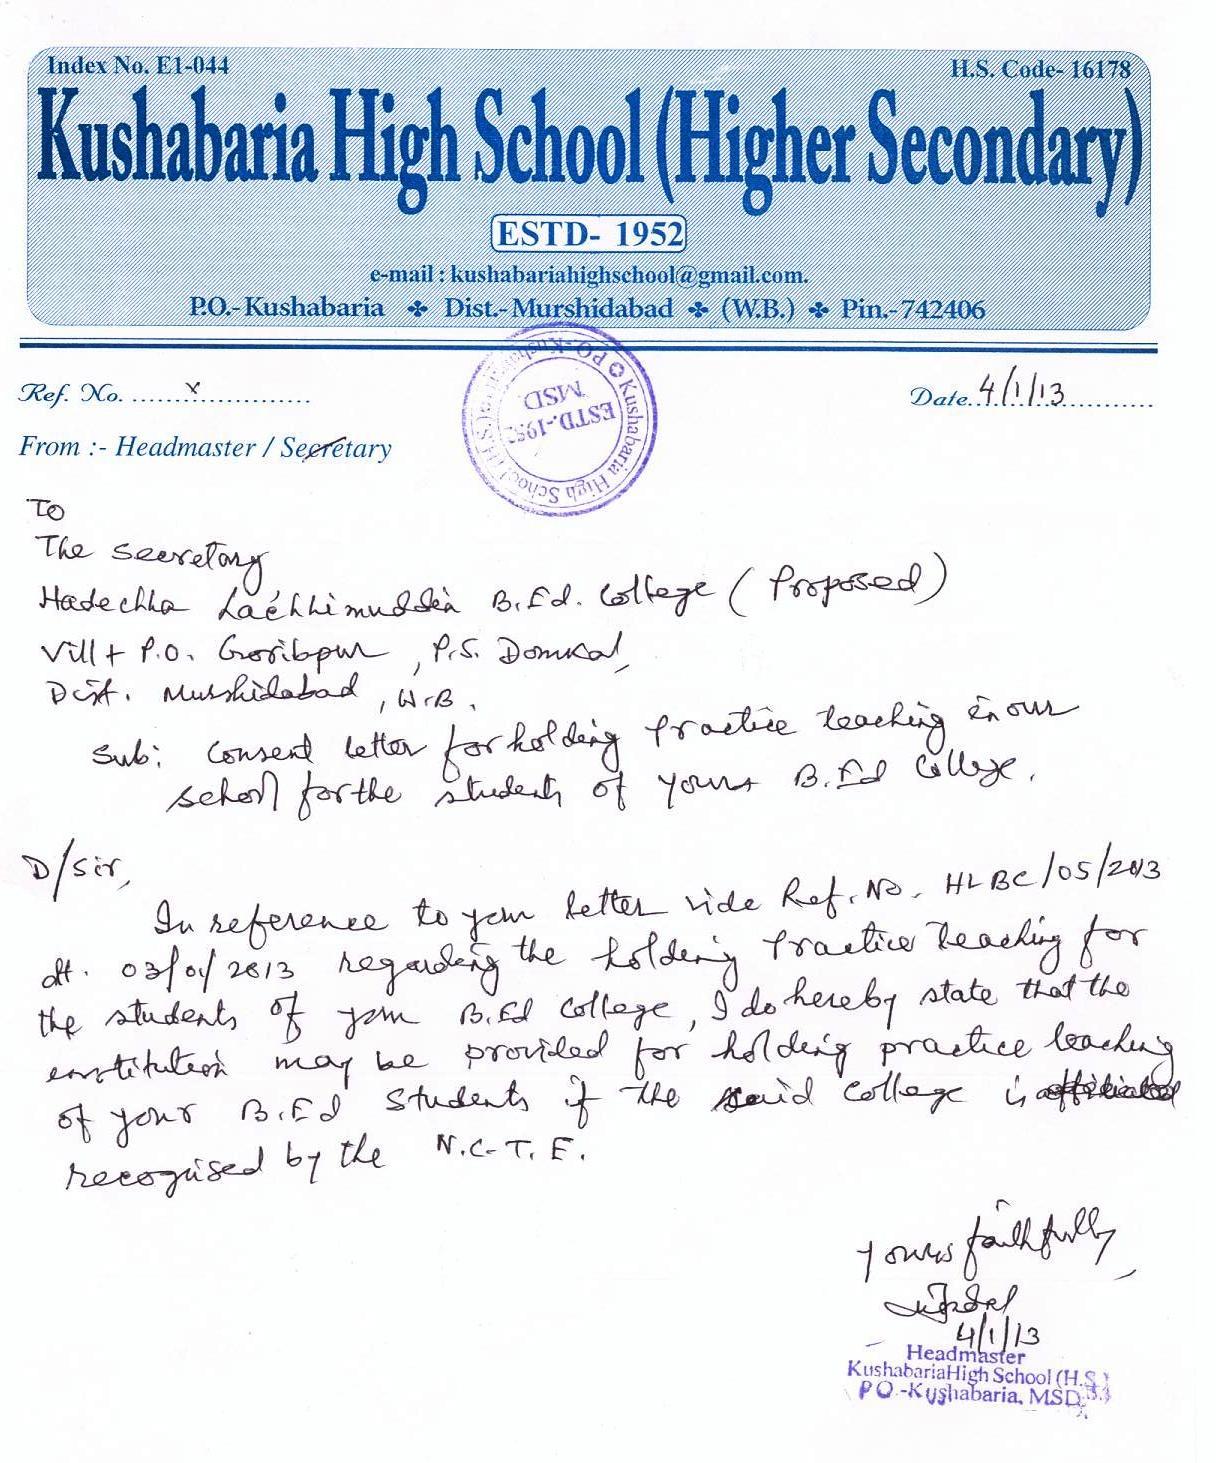 Index No. E1-044
H.S. Code- 16178
Kushabaria High School (Higher Secondary)
ESTD- 1952
e-mail : kushabariahighschool@gmail.com.
P.O.-Kushabaria ✤ Dist.-Murshidabad ✤ (W.B.) ✤ Pin.-742406
Ref. No. ......x..............
Date..4/1/13............
From :- Headmaster / Secretary
Kushabaria High School (H.S.) ✪ PO-Kushabaria
ESTD.-1952
MSD.
To
The Secretary
Hadechha Lachhimuddin B.Ed. College (Proposed)
Vill + P.O. Goribpur, P.S. Domkal,
Dist. Murshidabad, W.B.
Sub: Consent letter for holding Practice teaching in our
school for the students of yours B.Ed College.
D/Sir,
In reference to your letter vide Ref. No. HLBC/05/2013
dt. 03/01/2013 regarding the holding Practice Teaching for
the students of your B.Ed College, I do hereby state that the
institution may be provided for holding practice teaching
of your B.Ed Students if the said College is
recognised by the N.C.T.E.
Yours faithfully,
4/1/13
Headmaster
KushabariaHigh School (H.S.)
PO.-Kushabaria, MSD.